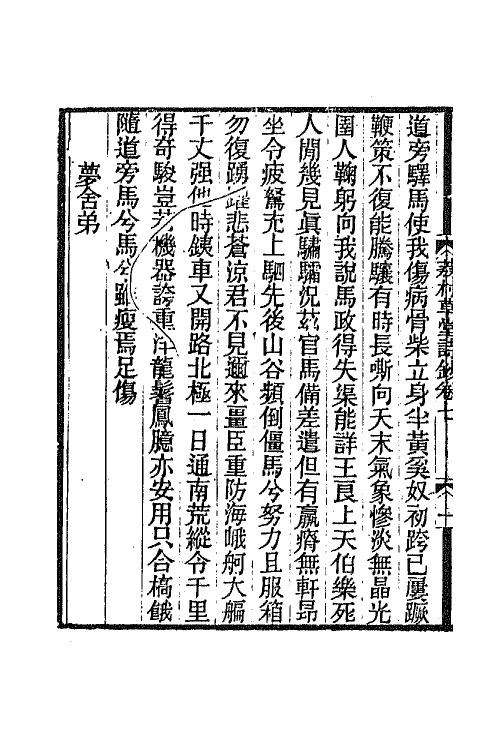 道旁驛馬使我傷病骨柴立身半黃奚奴初跨已屢蹶
鞭策不復能騰驤有時長嘶向天末氣象慘淡無晶光
圉人鞠躬向我說馬政得失渠能詳王良上天伯樂死
人間幾見真驌驦況茲官馬備差遣但有羸瘠無軒昂
坐令疲駑充上駟先後山谷頻倒僵馬兮努力且服箱
勿復踴躍悲蒼涼君不見邇來畺臣重防海峨舸大艑
千丈强他時鐵車又開路北極一日通南荒縱令千里
得奇駿豈若機器誇重洋龍鬐鳳臆亦安用只合槁餓
隨道旁馬兮馬兮雖瘦焉足傷
夢舍弟
草堂詩鈔卷七